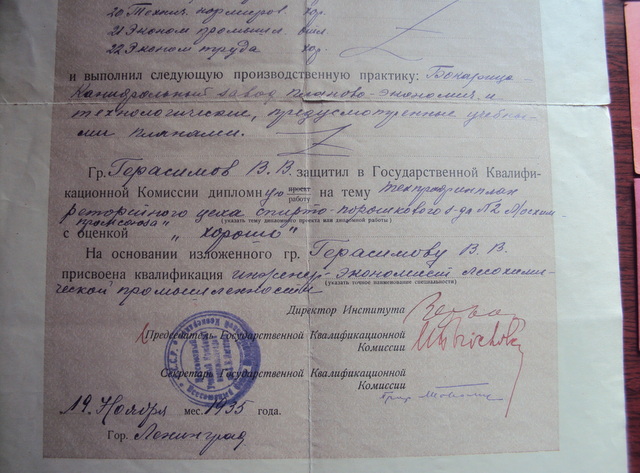 20 Технич. нормиров. хор.
21 Эконом промышл
22 Эконом труда хор.
и выполнил следующую производственную практику:
завод планово-экономич. и
технологические, предусмотренные учебны-
ми планами.
Гр. Герасимов В.В. защитил в Государственной Квалифи-
кационной Комиссии дипломную проект работу на тему техпромфинплан
цеха спирто-порошкового з-да №2
(указать тему дипломного проекта или дипломной работы)
с оценкой „хорошо“
На основании изложенного гр. Герасимову В. В.
присвоена квалификация инженер-экономист лесохими-
(указать точное наименование специальности)
ческой промышленности
Директор Института
Председатель Государственной Квалификационной
Комиссии
Секретарь Государственной Квалификационной
Комиссии
19 Ноября мес. 1935 года.
Гор. Ленинград